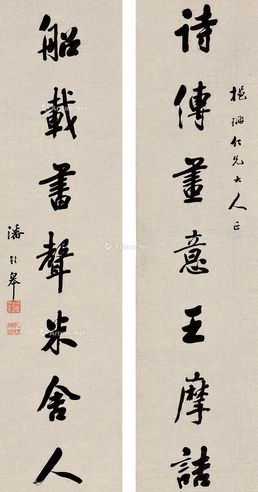 仁兄大人正
詩傳畫意王摩詰
船載書聲米舍人
潘齡皋